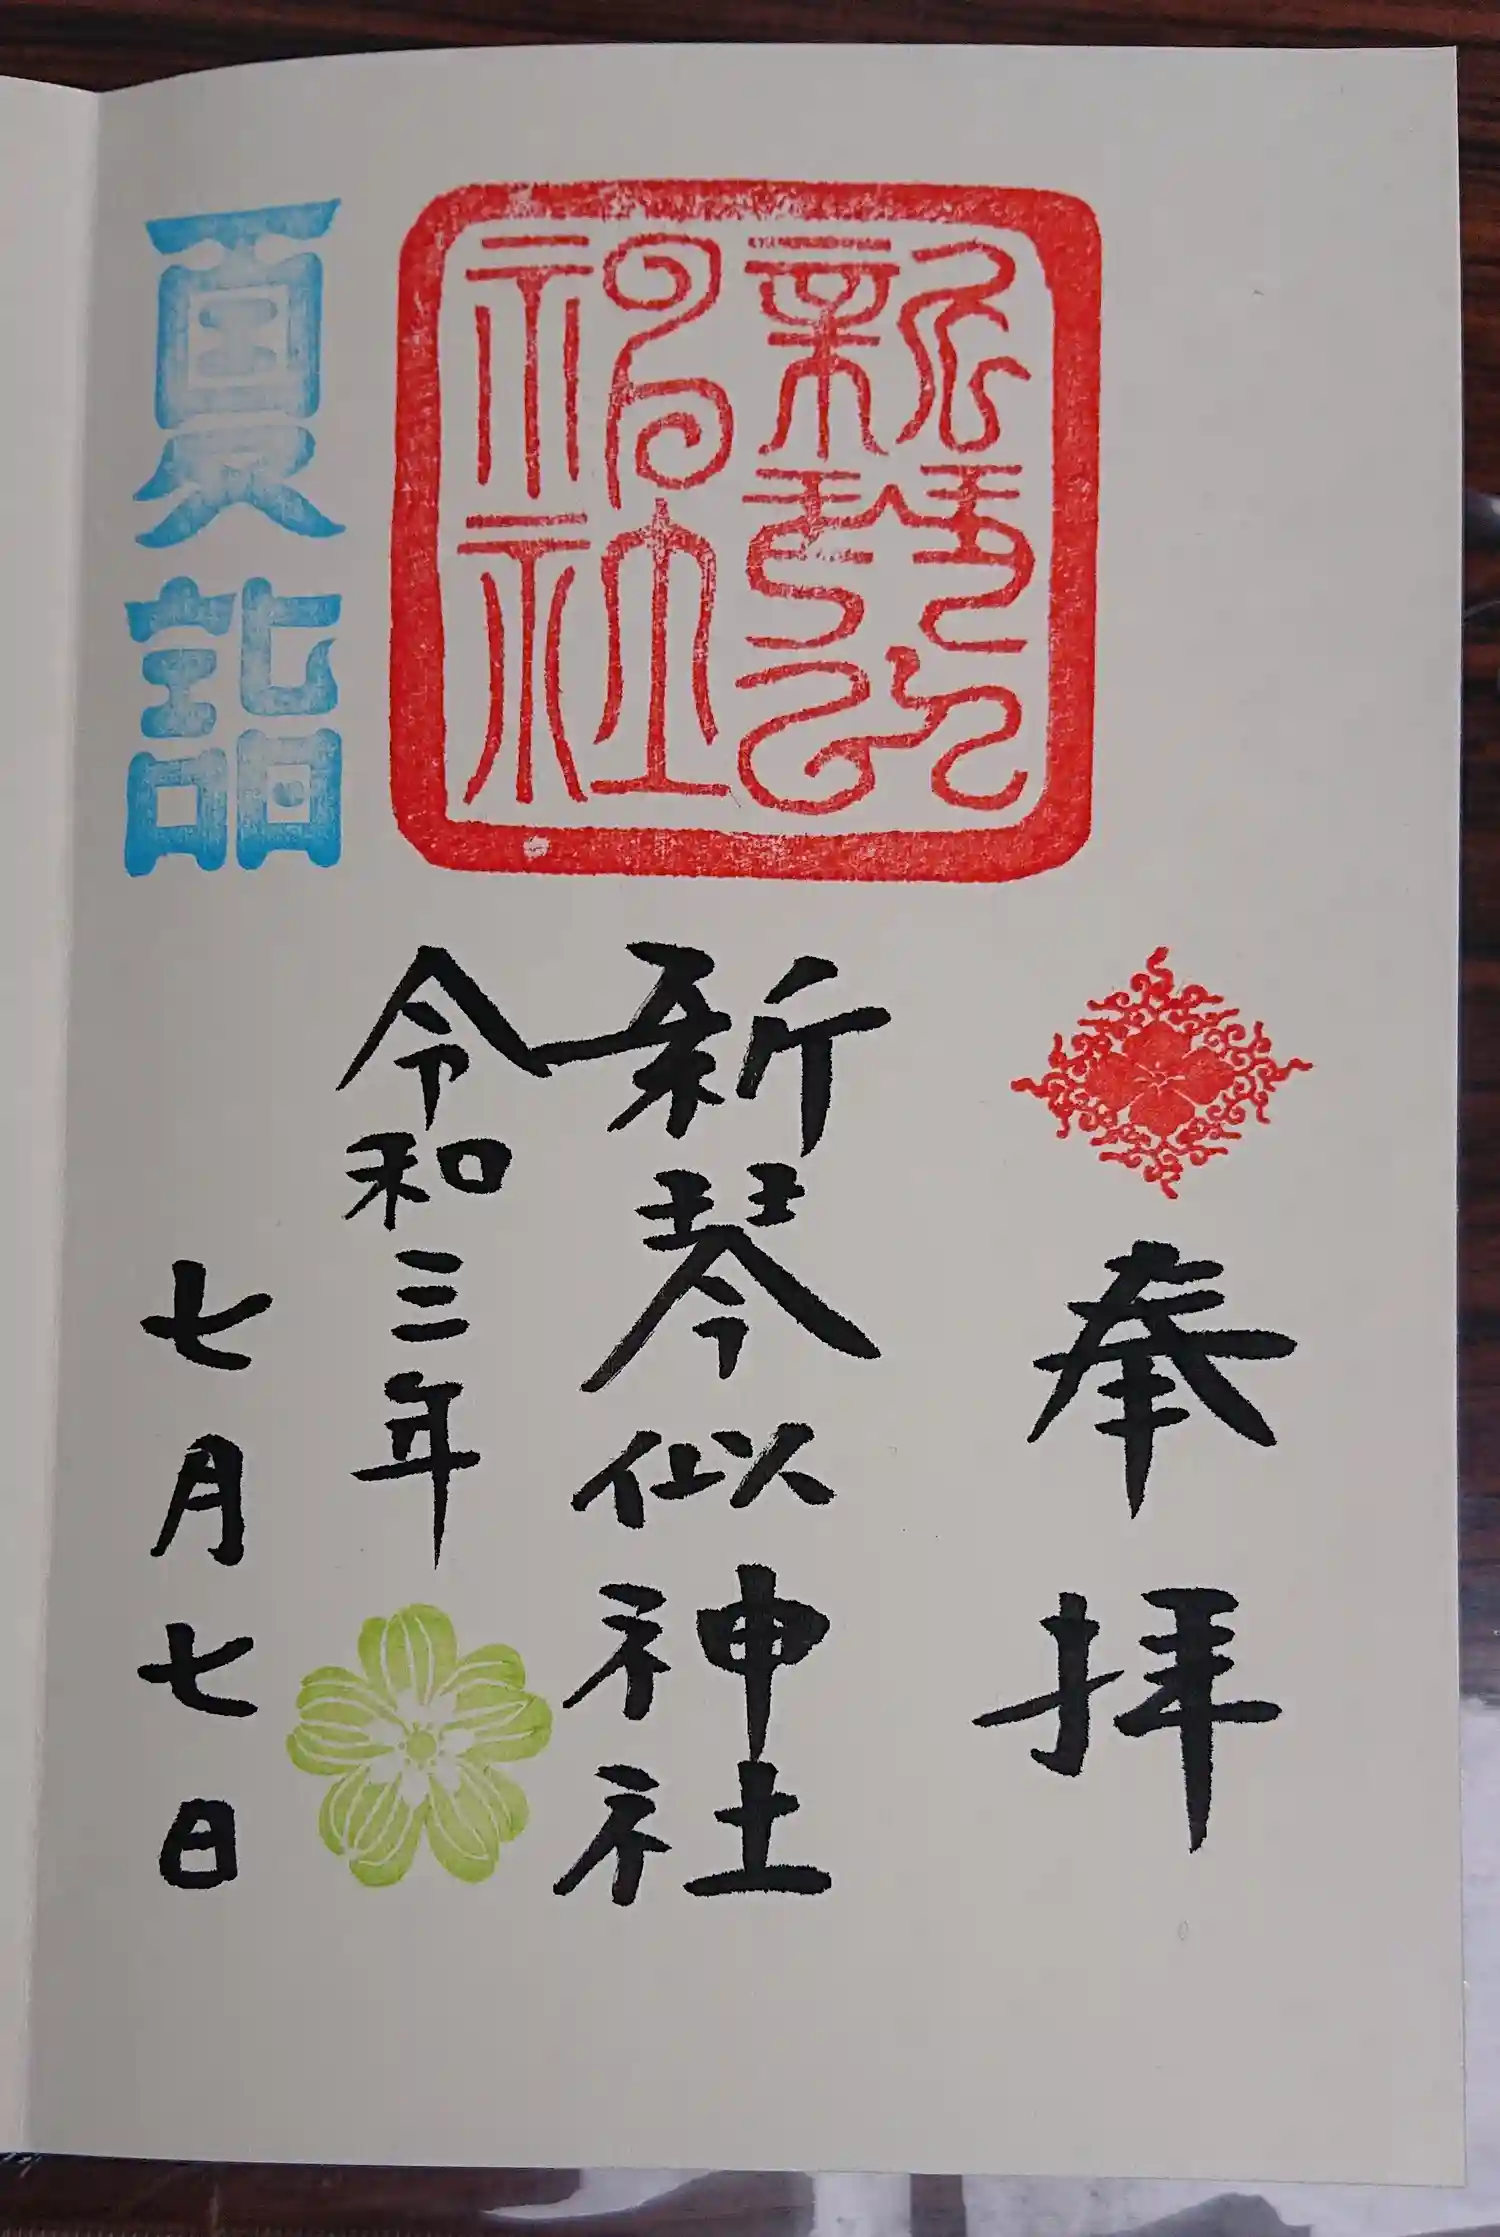 奉拝
新琴似神社
新琴似神社
令和三年
七月七日
夏詣